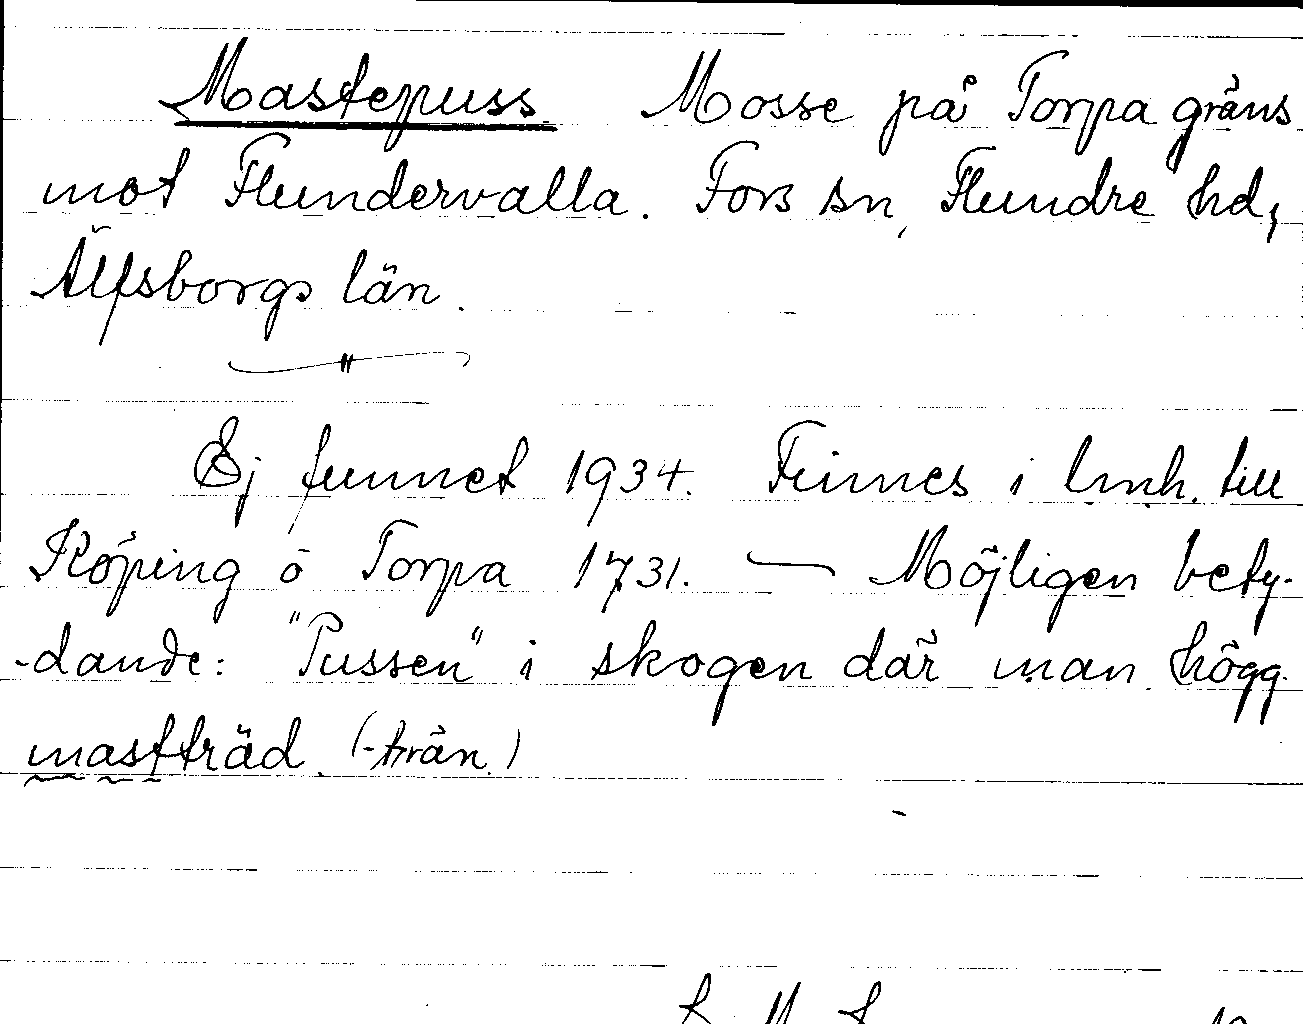 Mastepuss Mosse på Torpa gräns
mot Flundervalla. Fors sn, Flundre hd,
Älfsborgs län.
"
Ej funnet 1934. Finnes i lmh. till
Köping o Torpa 1731. — Möjligen bety-
-dande: "Pussen" i skogen där man högg
mastträd. (-trän.)